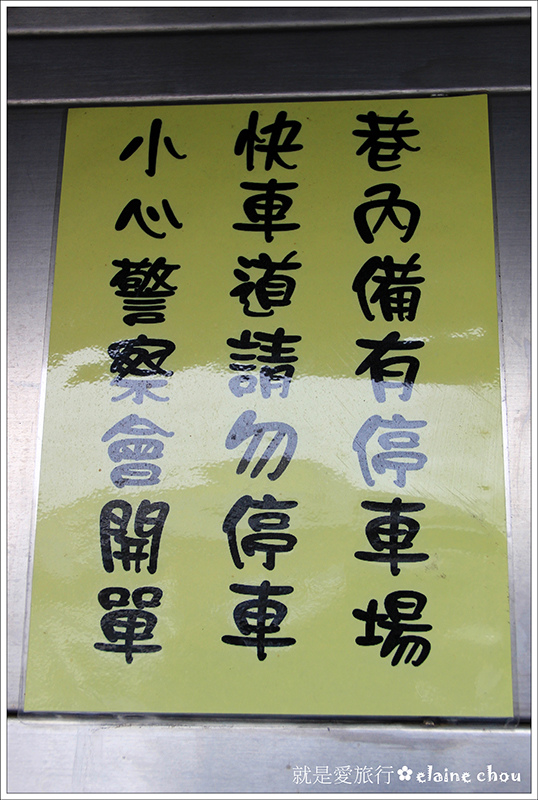 巷內備有停車場
快車道請勿停車
小心警察會開單
就是愛旅行✿elaine chou